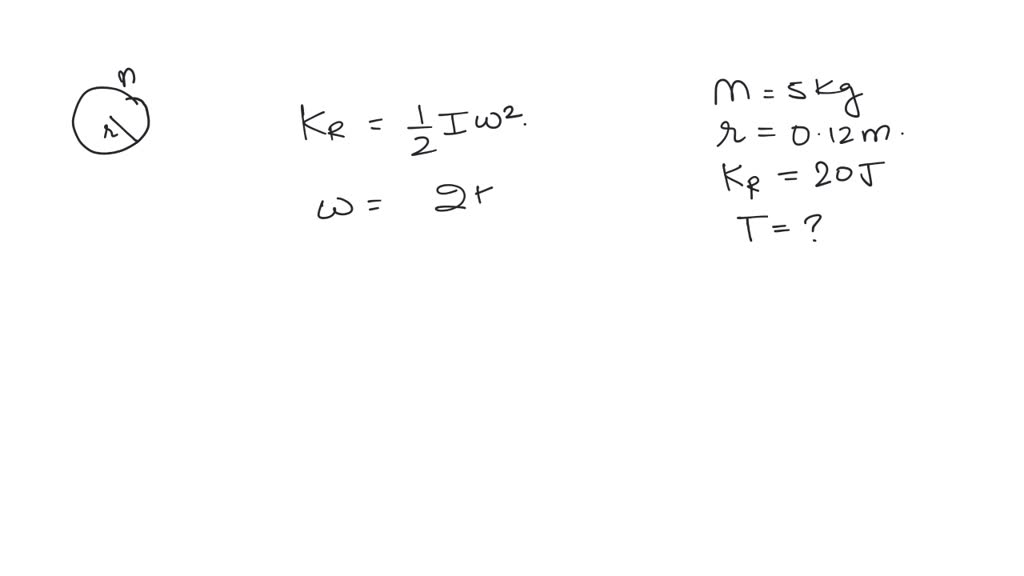 m
r
K_R = 1/2 I ω².
ω = 2π
m = 5 kg
r = 0.12 m.
K_R = 20 J
T = ?